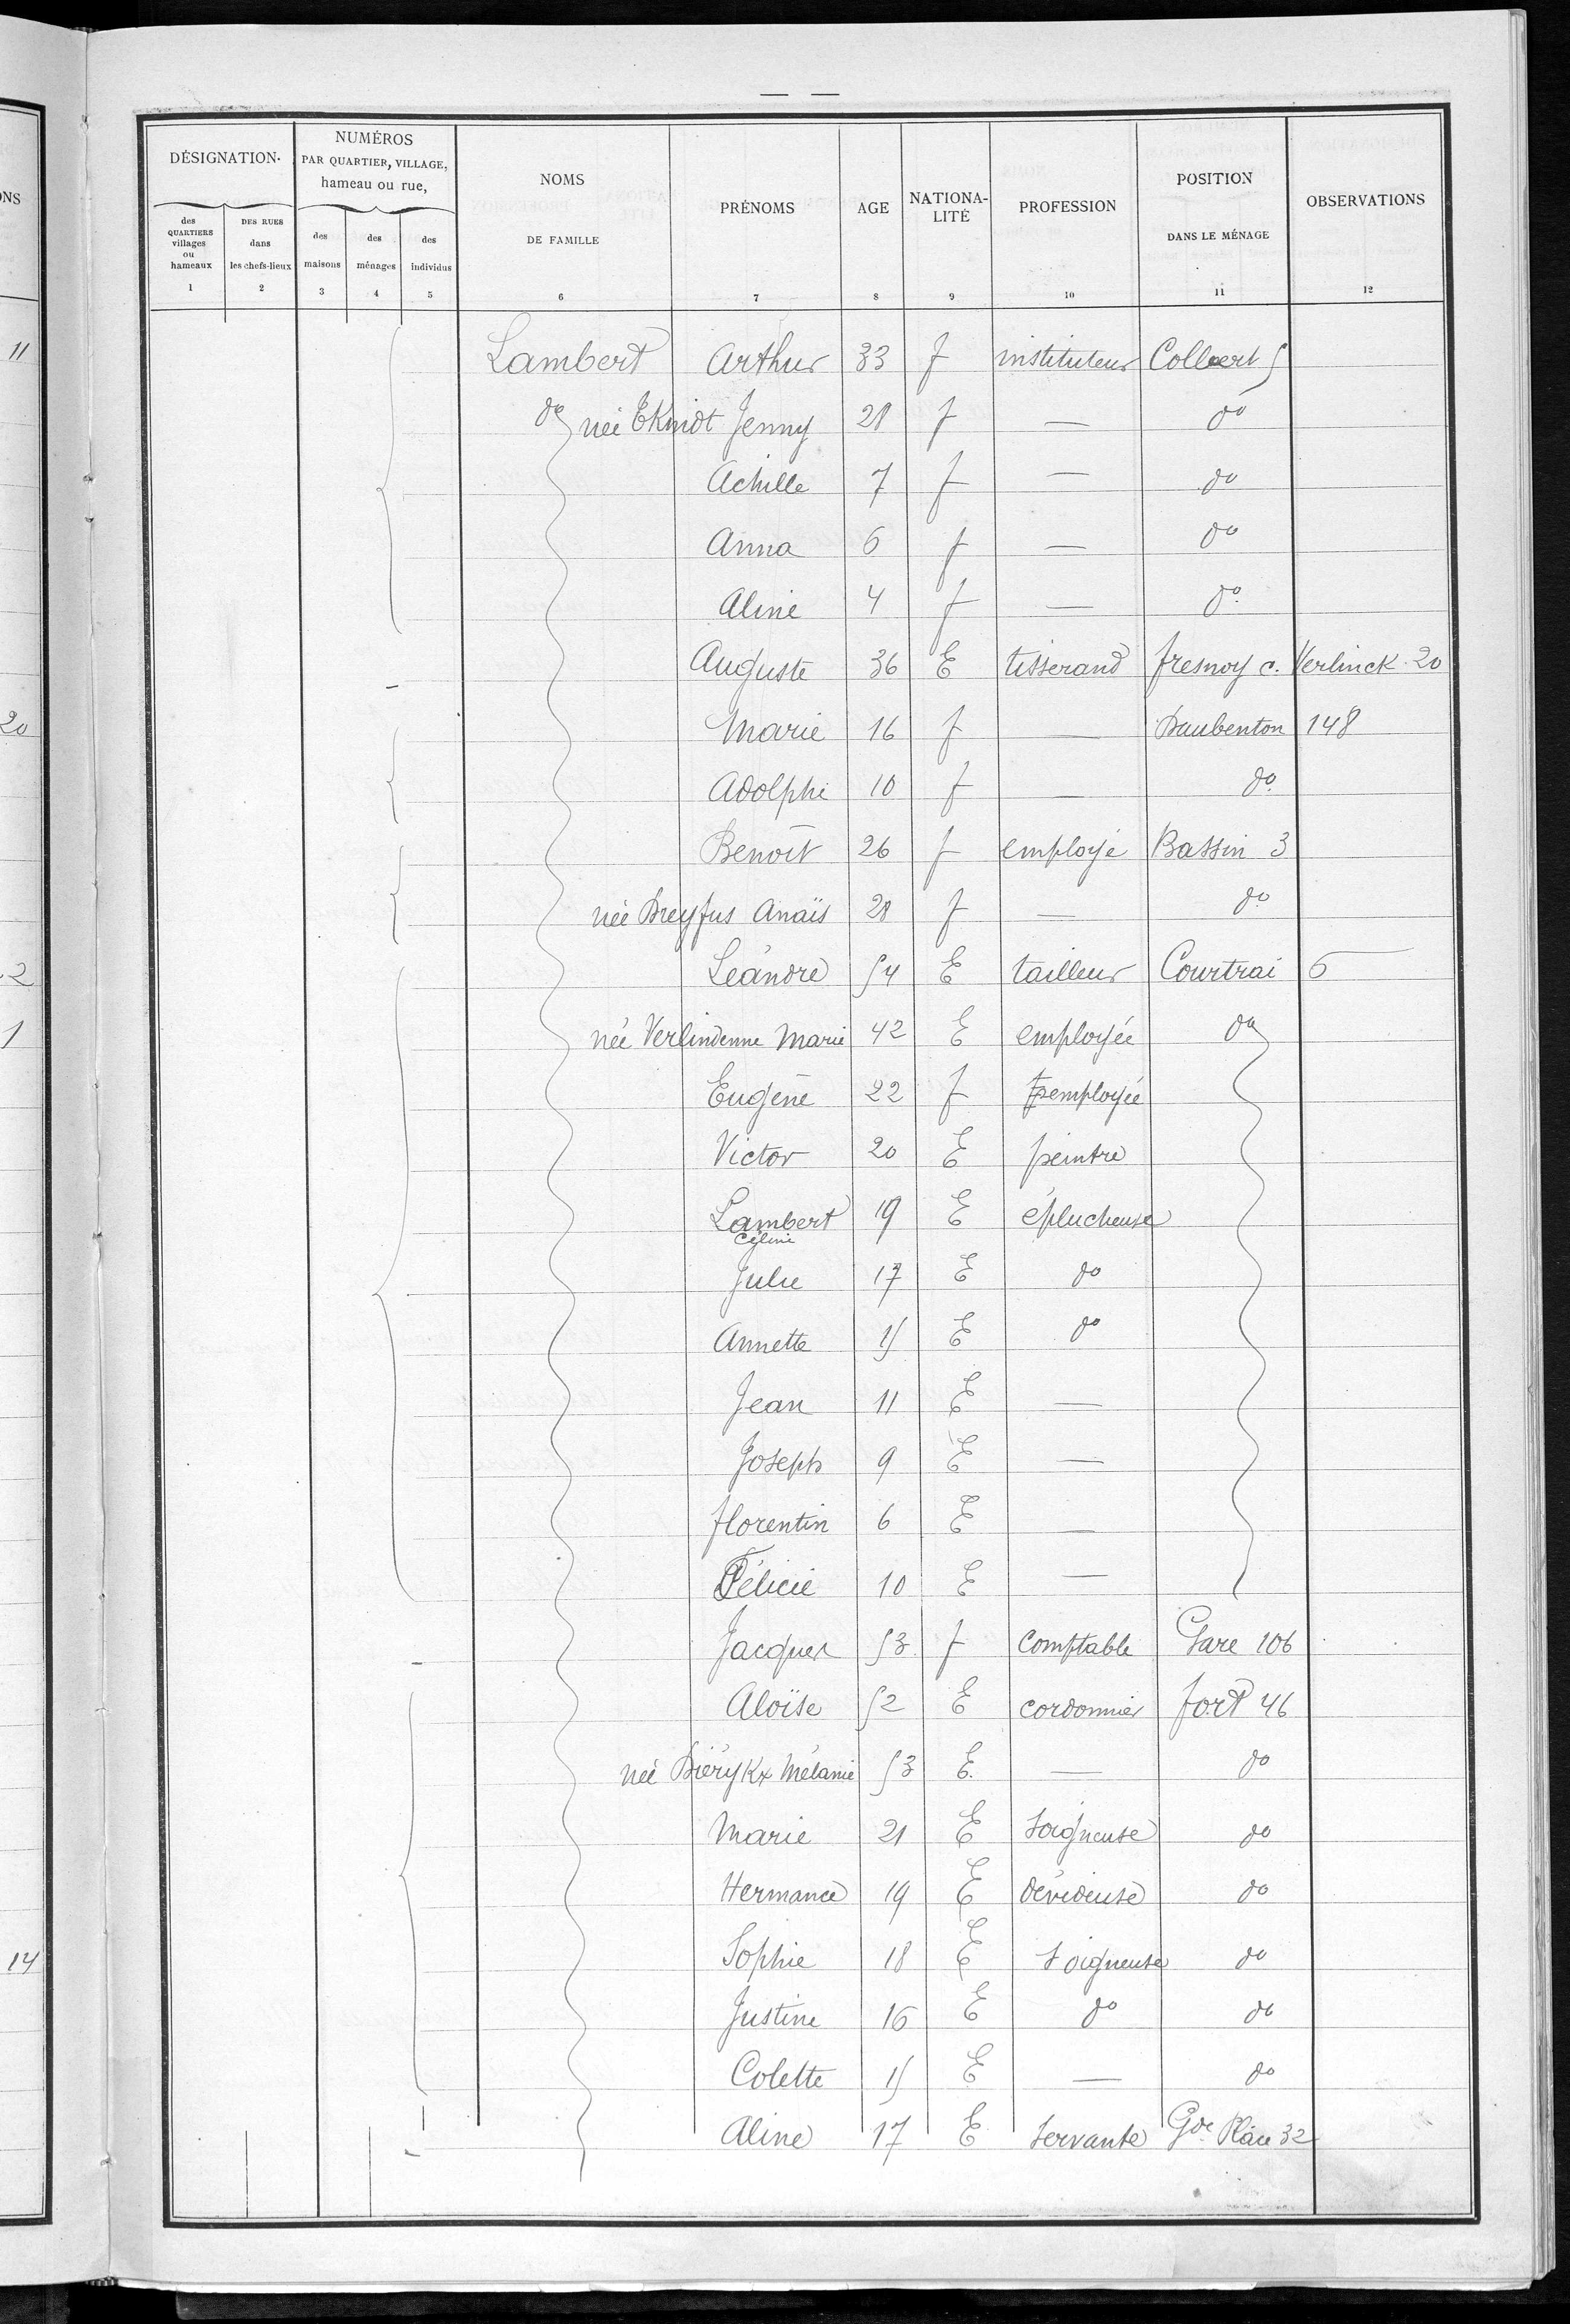 DÉSIGNATION. NUMÉROS PAR QUARTIER, VILLAGE, hameau ou rue, NOMS DE FAMILLE PRÉNOMS AGE NATIONA-LITÉ PROFESSION POSITION DANS LE MÉNAGE OBSERVATIONS
des QUARTIERS villages ou hameaux DES RUES dans les chefs-lieux des maisons des ménages des individus
1 2 3 4 5 6 7 8 9 10 11 12
Lambert Arthur 33 f instituteur Colbert 5
do née EKindt Jenny 28 f — do
Achille 7 f — do
Anna 6 f — do
Aline 4 f — do
Auguste 36 E tisserand fresnoy c. Verlinck 20
Marie 16 f — Daubenton 148
Adolphe 10 f — do
Benoît 26 f employé Bassin 3
née Dreyfus Anaïs 28 f — do
Léandre 54 E tailleur Courtrai 6
née Verlindenne Marie 42 E employée do
Eugène 22 f employée
Victor 20 E peintre
Lambert 19 E éplucheuse
Céline
Julie 17 E do
Annette 15 E do
Jean 11 E —
Joseph 9 E —
florentin 6 E —
Félicie 10 E —
Jacques 53 f comptable Gare 106
Aloïse 52 E cordonnier fort 46
née Diérykx Mélanie 53 E. — do
Marie 21 E soigneuse do
Hermance 19 E dévideuse do
Sophie 18 E soigneuse do
Justine 16 E do do
Colette 15 E — do
Aline 17 E servante Gde Place 32
ONS
11
20
2
1
14